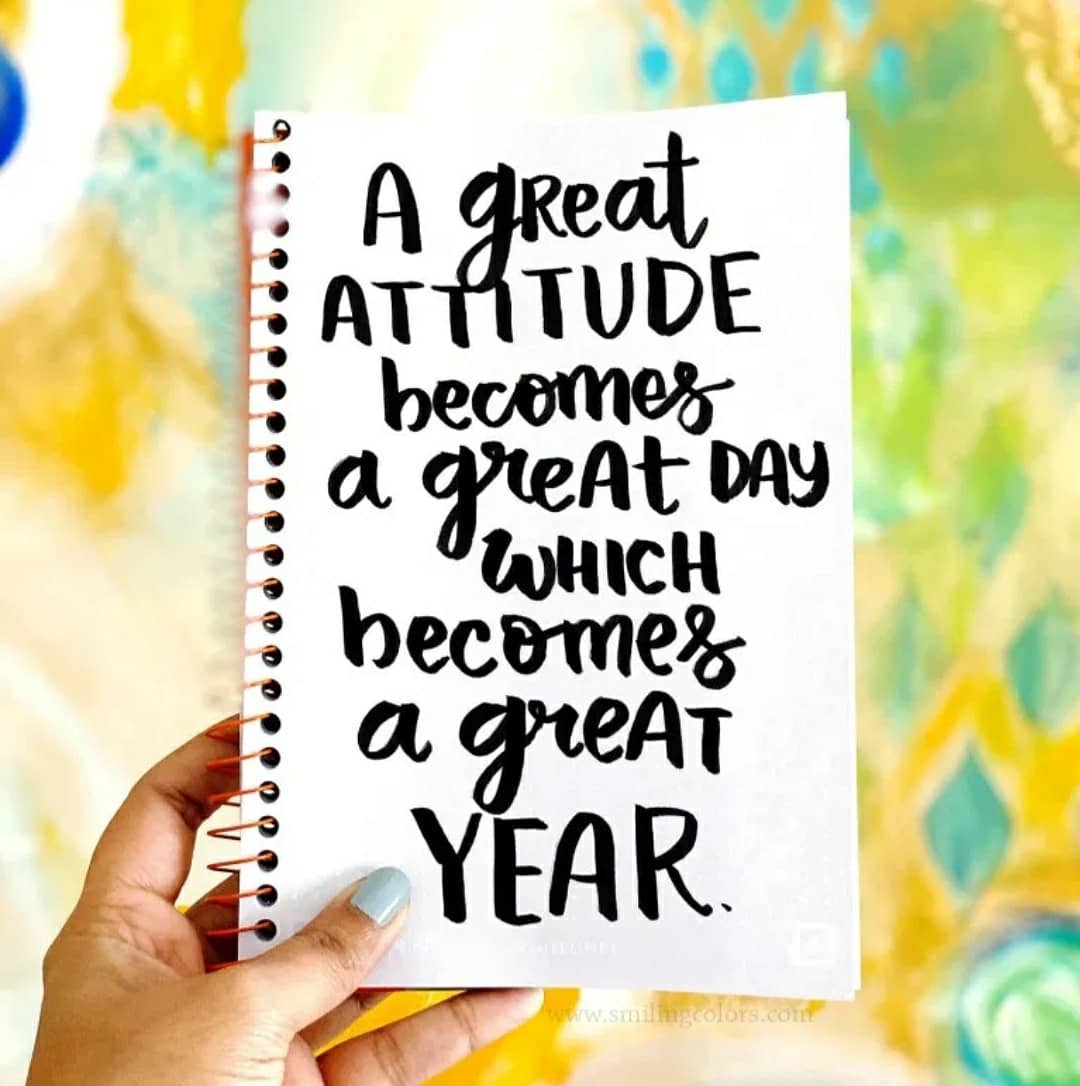 A gReat
ATTITUDE
becomes
a greAt DAY
WHICH
becomes
a greAT
YEAR.
www.smilingcolors.com